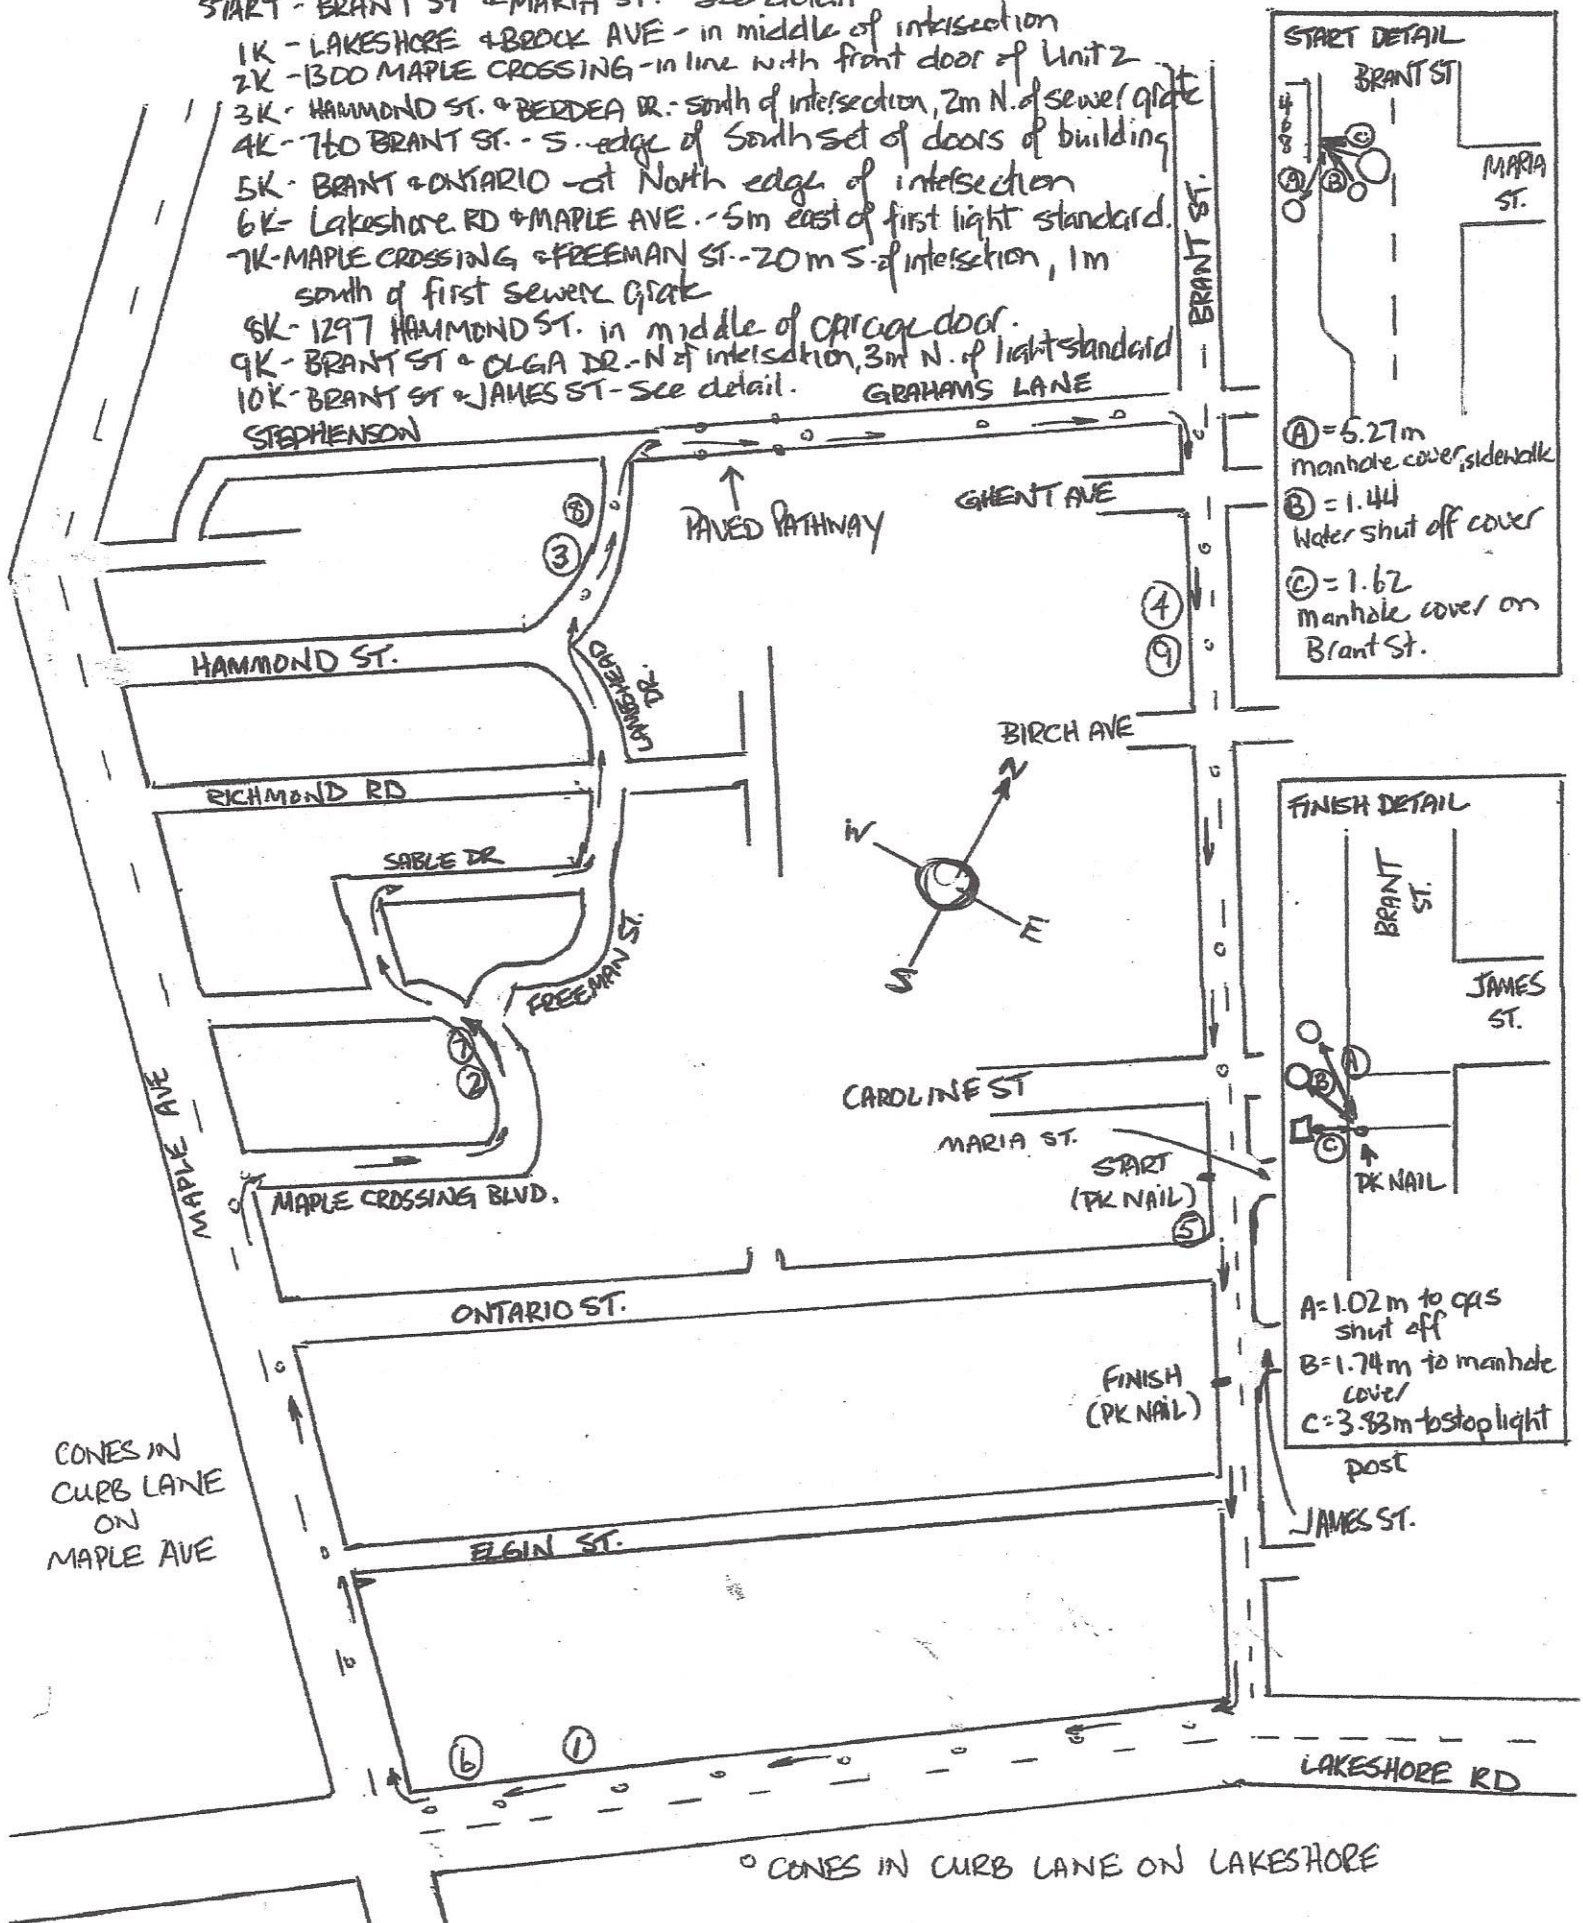 START - BRANT ST & MARIA ST. - See detail
1K - LAKESHORE & BROCK AVE - in middle of intersection
2K - 1300 MAPLE CROSSING - in line with front door of Unit 2
3K - HAMMOND ST. & BERDEA DR. - south of intersection, 2m N. of sewer grate
4K - 760 BRANT ST. - S. edge of South set of doors of building
5K - BRANT & ONTARIO - at North edge of intersection
6K - Lakeshore RD & MAPLE AVE. - 5m east of first light standard.
7K - MAPLE CROSSING & FREEMAN ST. - 20m S. of intersection, 1m
south of first sewere grate
8K - 1297 HAMMOND ST. in middle of garage door.
9K - BRANT ST & OLGA DR. - N of intersection, 3m N. of light standard
10K - BRANT ST & JAMES ST - See detail.
STEPHENSON
GRAHAMS LANE
BRANT ST.
PAVED PATHWAY
GHENT AVE
8
3
4
9
HAMMOND ST.
LANGSHEAD
DR.
BIRCH AVE
RICHMOND RD
SABLE DR
N
W
E
S
FREEMAN ST.
7
2
CAROLINE ST
MARIA ST.
START
(PK NAIL)
5
MAPLE AVE
MAPLE CROSSING BLVD.
ONTARIO ST.
FINISH
(PK NAIL)
CONES IN
CURB LANE
ON
MAPLE AVE
JAMES ST.
ELGIN ST.
6
1
LAKESHORE RD
CONES IN CURB LANE ON LAKESHORE
START DETAIL
BRANT ST
4
6
8
C
A
B
MARIA
ST.
A = 5.27m
manhole cover, sidewalk
B = 1.44
Water shut off cover
C = 1.62
manhole cover on
Brant St.
FINISH DETAIL
BRANT
ST.
JAMES
ST.
A
B
C
PK NAIL
A=1.02m to gas
shut off
B=1.74m to manhole
cover
C=3.83m to stop light
post